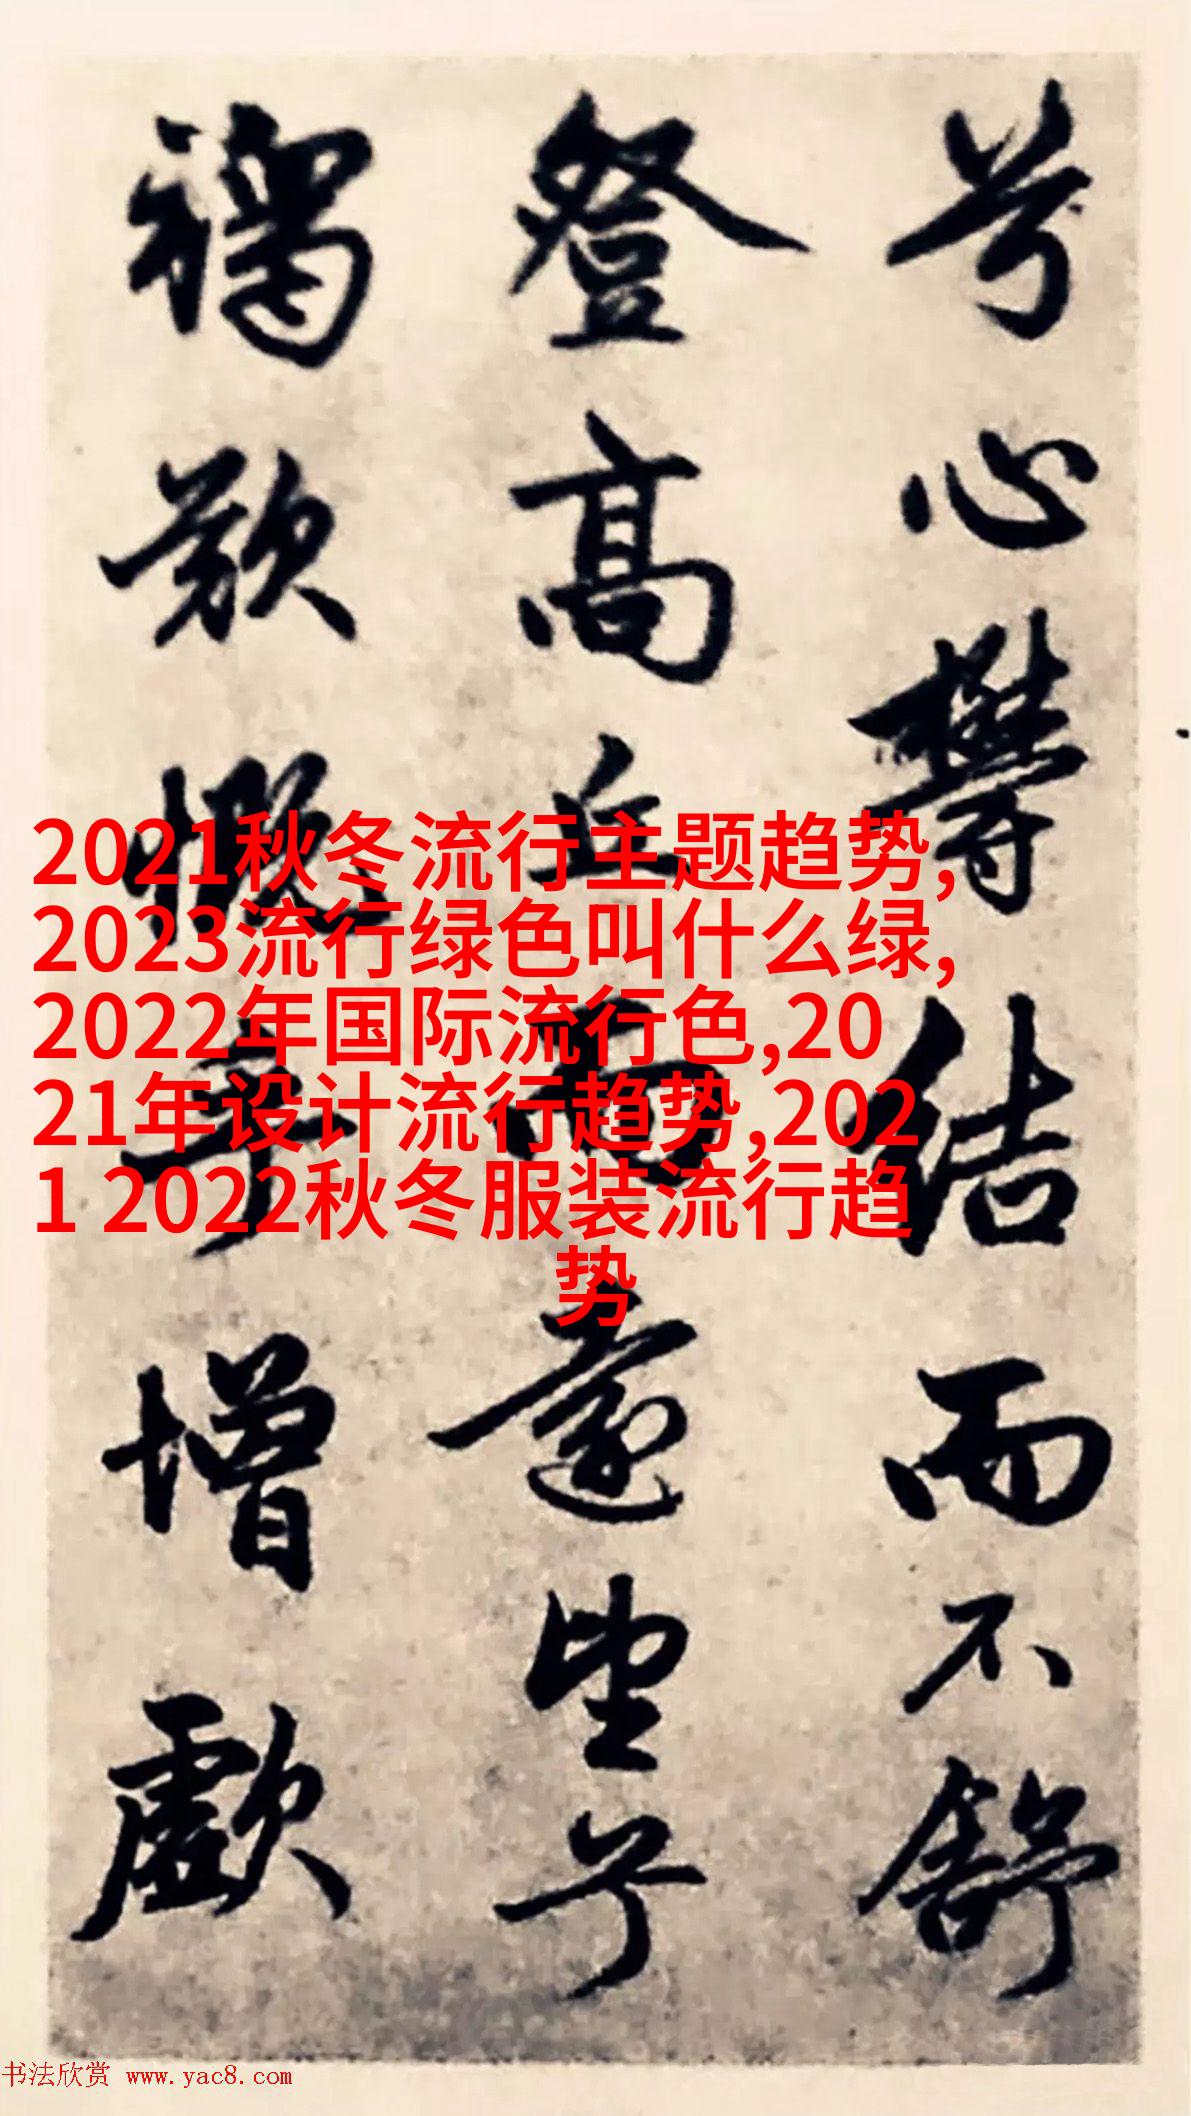 兮心欝結而不舒
登高丘而遠望兮
慨增歔
2021秋冬流行主题趋势,
2023流行绿色叫什么绿,
2022年国际流行色,20
21年设计流行趋势,202
1 2022秋冬服装流行趋
势
书法欣赏 www.yac8.com